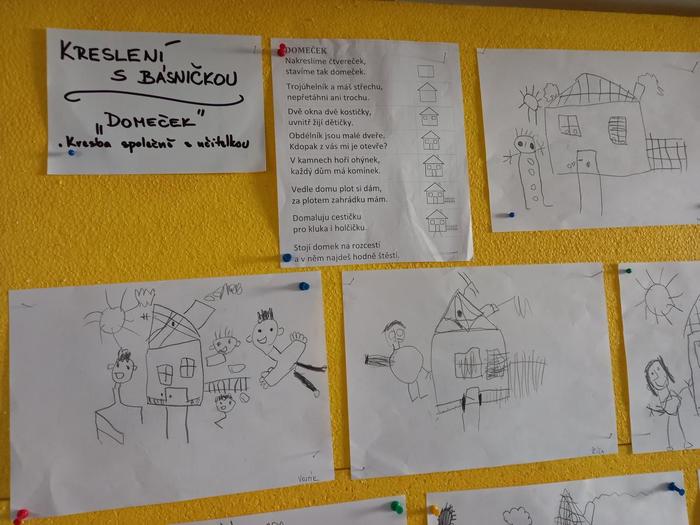 KRESLENÍ
S BÁSNIČKOU
"DOMEČEK"
• Kresba společně s učitelkou
DOMEČEK
Nakreslíme čtvereček,
stavíme tak domeček.
Trojúhelník a máš střechu,
nepřetáhni ani trochu.
Dvě okna dvě kostičky,
uvnitř žijí dětičky.
Obdélník jsou malé dveře.
Kdopak z vás mi je otevře?
V kamnech hoří ohýnek,
každý dům má komínek.
Vedle domu plot si dám,
za plotem zahrádku mám.
Domaluju cestičku
pro kluka i holčičku.
Stojí domek na rozcestí
a v něm najdeš hodně štěstí.